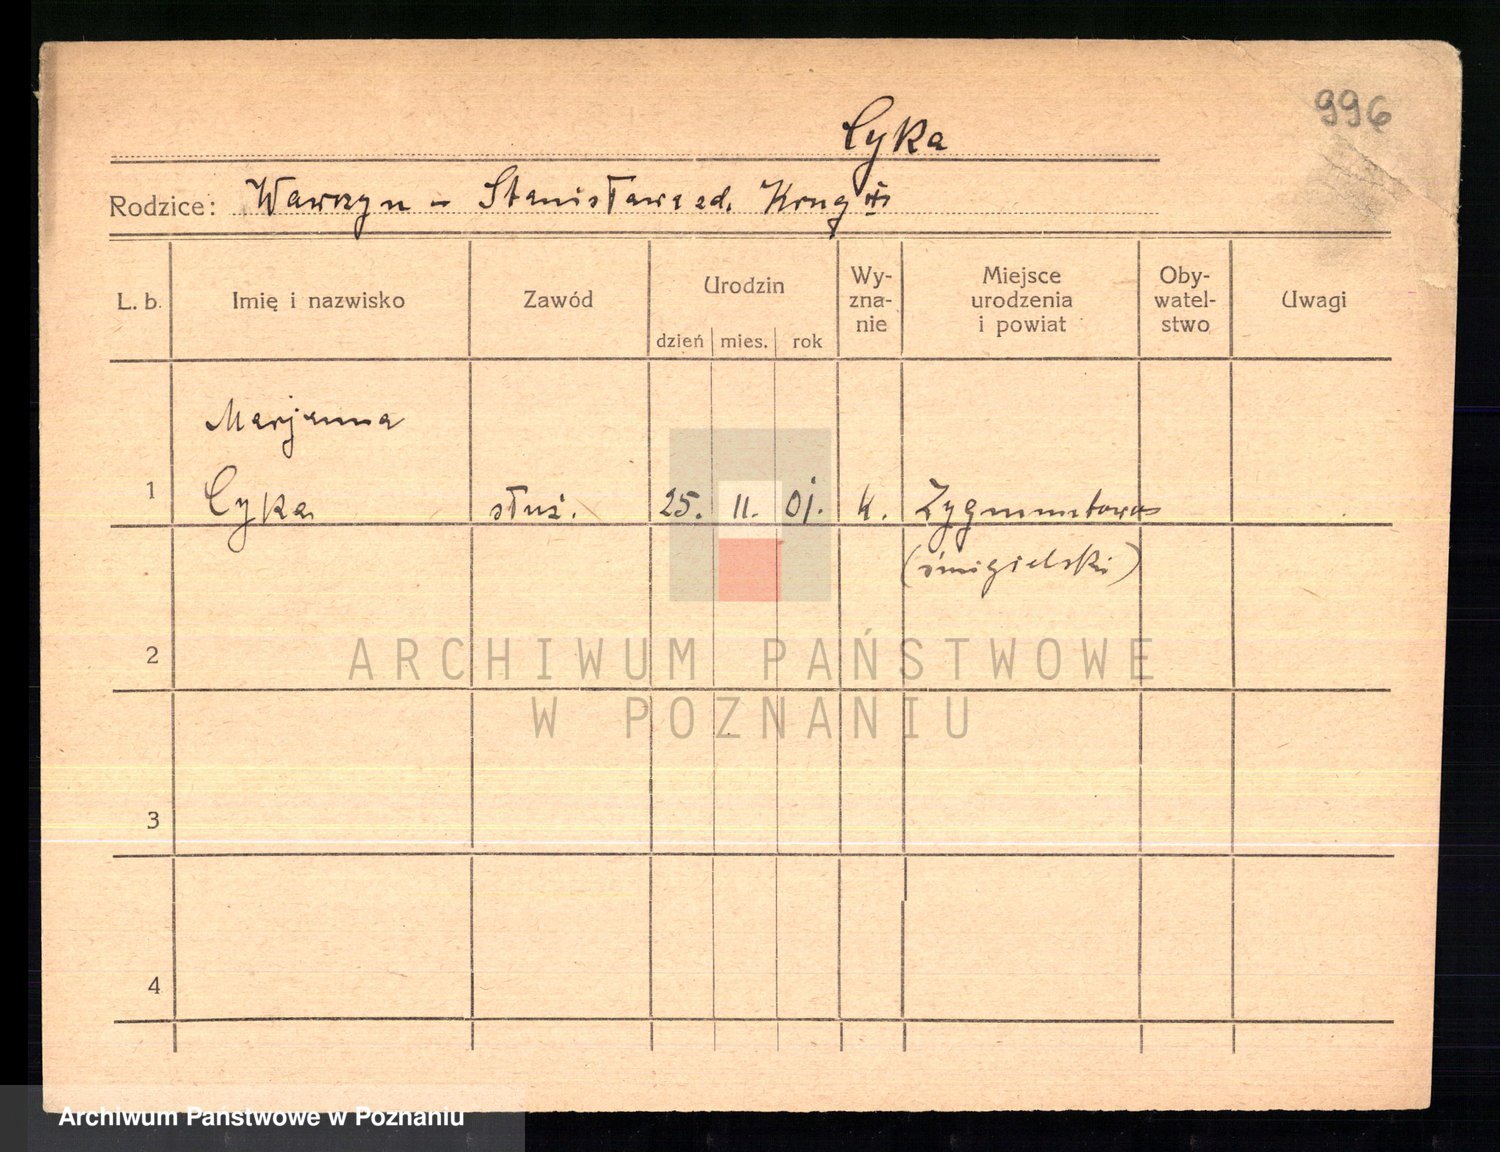 996
Cyka
Rodzice: Wawrzyn - Stanisława zd.
L. b. Imię i nazwisko Zawód Urodzin dzień mies. rok Wy-zna-nie Miejsce urodzenia i powiat Oby-watel-stwo Uwagi
Marjanna
1 Cyka służ. 25. 11. 01. k. Zygmuntowo
(śmigielski)
2
3
4
ARCHIWUM PAŃSTWOWE
W POZNANIU
Archiwum Państwowe w Poznaniu